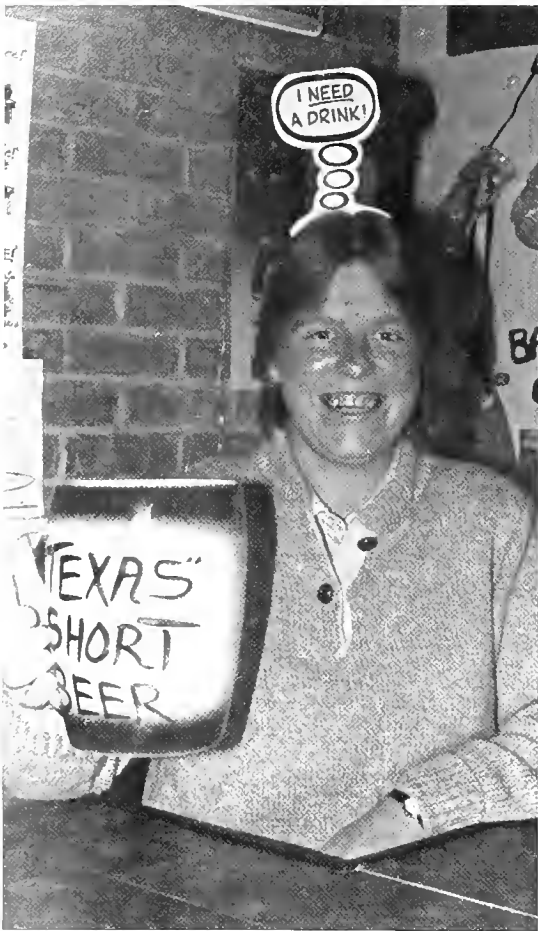 I NEED
A DRINK!
"TEXAS"
SHORT
BEER